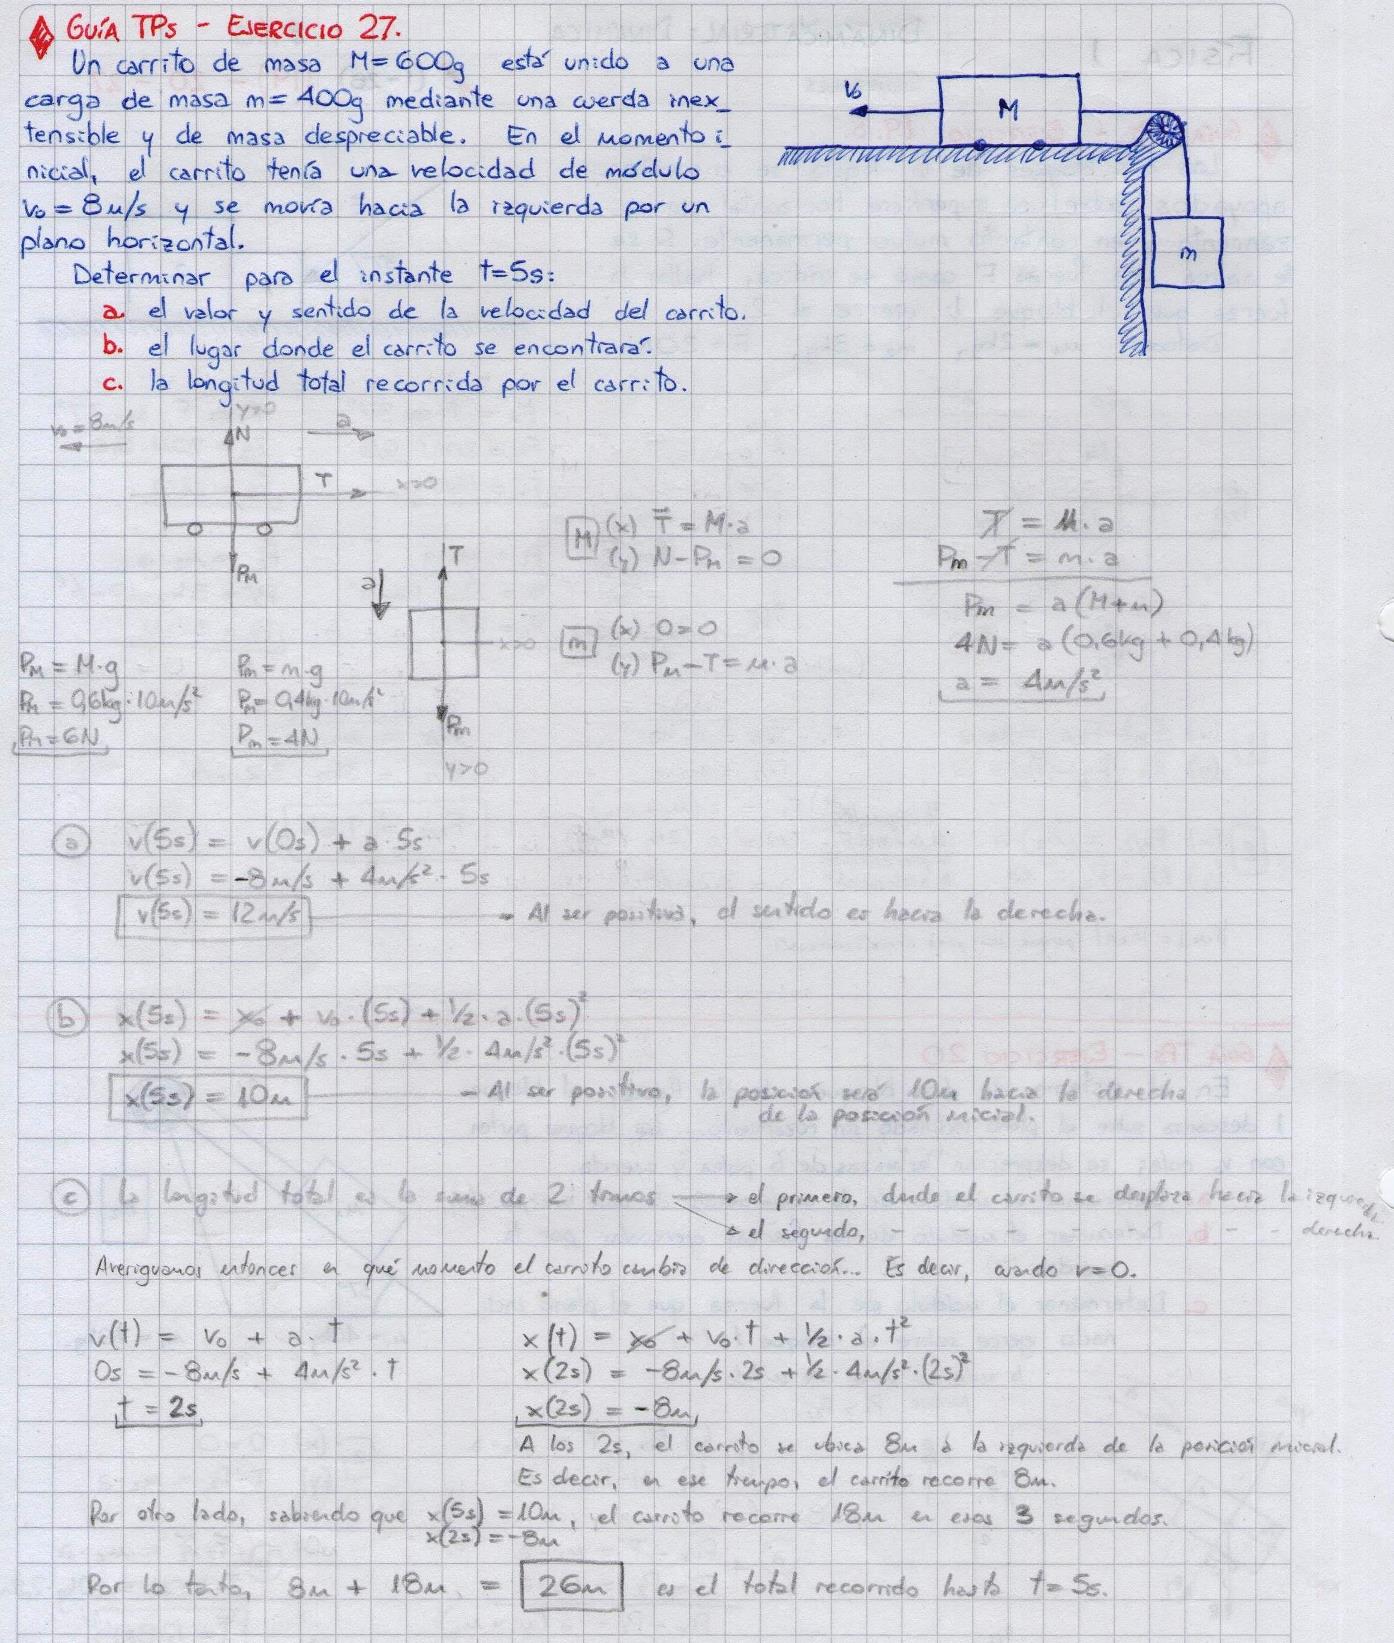 GUÍA TPs - EJERCICIO 27.
Un carrito de masa M=600g está unido a una
carga de masa m=400g mediante una cuerda inex_
tensible y de masa despreciable. En el momento i_
nicial, el carrito tenía una velocidad de módulo
v₀=8m/s y se movía hacia la izquierda por un
plano horizontal.
Determinar para el instante t=5s:
a. el valor y sentido de la velocidad del carrito.
b. el lugar donde el carrito se encontrará.
c. la longitud total recorrida por el carrito.
v₀
M
m
v₀=8m/s
y>0
N
a
T
x>0
P_M
a
T
x>0
Pm
y>0
M (x) T = M·a
(y) N-P_M = 0
m (x) 0=0
(y) Pm-T=m·a
T = M·a
Pm-T = m·a
Pm = a(M+m)
4N= a(0,6kg + 0,4kg)
a = 4m/s²
P_M = M·g
P_M = 0,6kg·10m/s²
P_M=6N
Pm=m·g
Pm=0,4kg·10m/s²
Pm=4N
a v(5s) = v(0s) + a·5s
v(5s) = -8m/s + 4m/s²·5s
v(5s) = 12m/s - Al ser positiva, el sentido es hacia la derecha.
b x(5s) = x₀ + v₀·(5s) + ½·a·(5s)²
x(5s) = -8m/s·5s + ½·4m/s²·(5s)²
x(5s) = 10m - Al ser positivo, la posición será 10m hacia la derecha
de la posición inicial.
c La longitud total es la suma de 2 tramos → el primero, donde el carrito se desplaza hacia la izquierda
→ el segundo, - - - - - - - derecha.
Averiguamos entonces en qué momento el carrito cambia de dirección... Es decir, cuando v=0.
v(t) = v₀ + a·t
0s = -8m/s + 4m/s²·t
t = 2s
x(t) = x₀ + v₀·t + ½·a·t²
x(2s) = -8m/s·2s + ½·4m/s²·(2s)²
x(2s) = -8m
A los 2s, el carrito se ubica 8m a la izquierda de la posición inicial.
Es decir, en ese tiempo, el carrito recorre 8m.
Por otro lado, sabiendo que x(5s)=10m, el carrito recorre 18m en esos 3 segundos.
x(2s)=-8m
Por lo tanto, 8m + 18m = 26m es el total recorrido hasta t=5s.